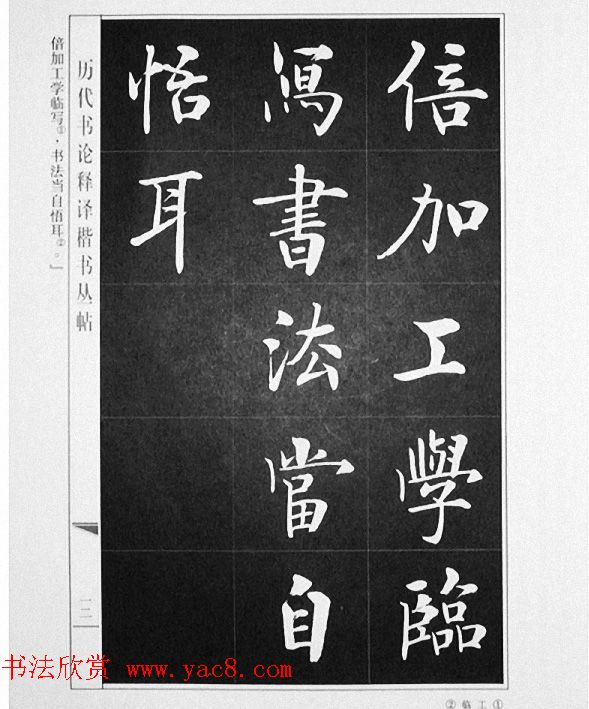 倍加工學臨
寫書法當自
悟耳
历代书论释译楷书丛帖
倍加工学临写①，书法当自悟耳②。」
三
书法欣赏 www.yac8.com
①工 临②